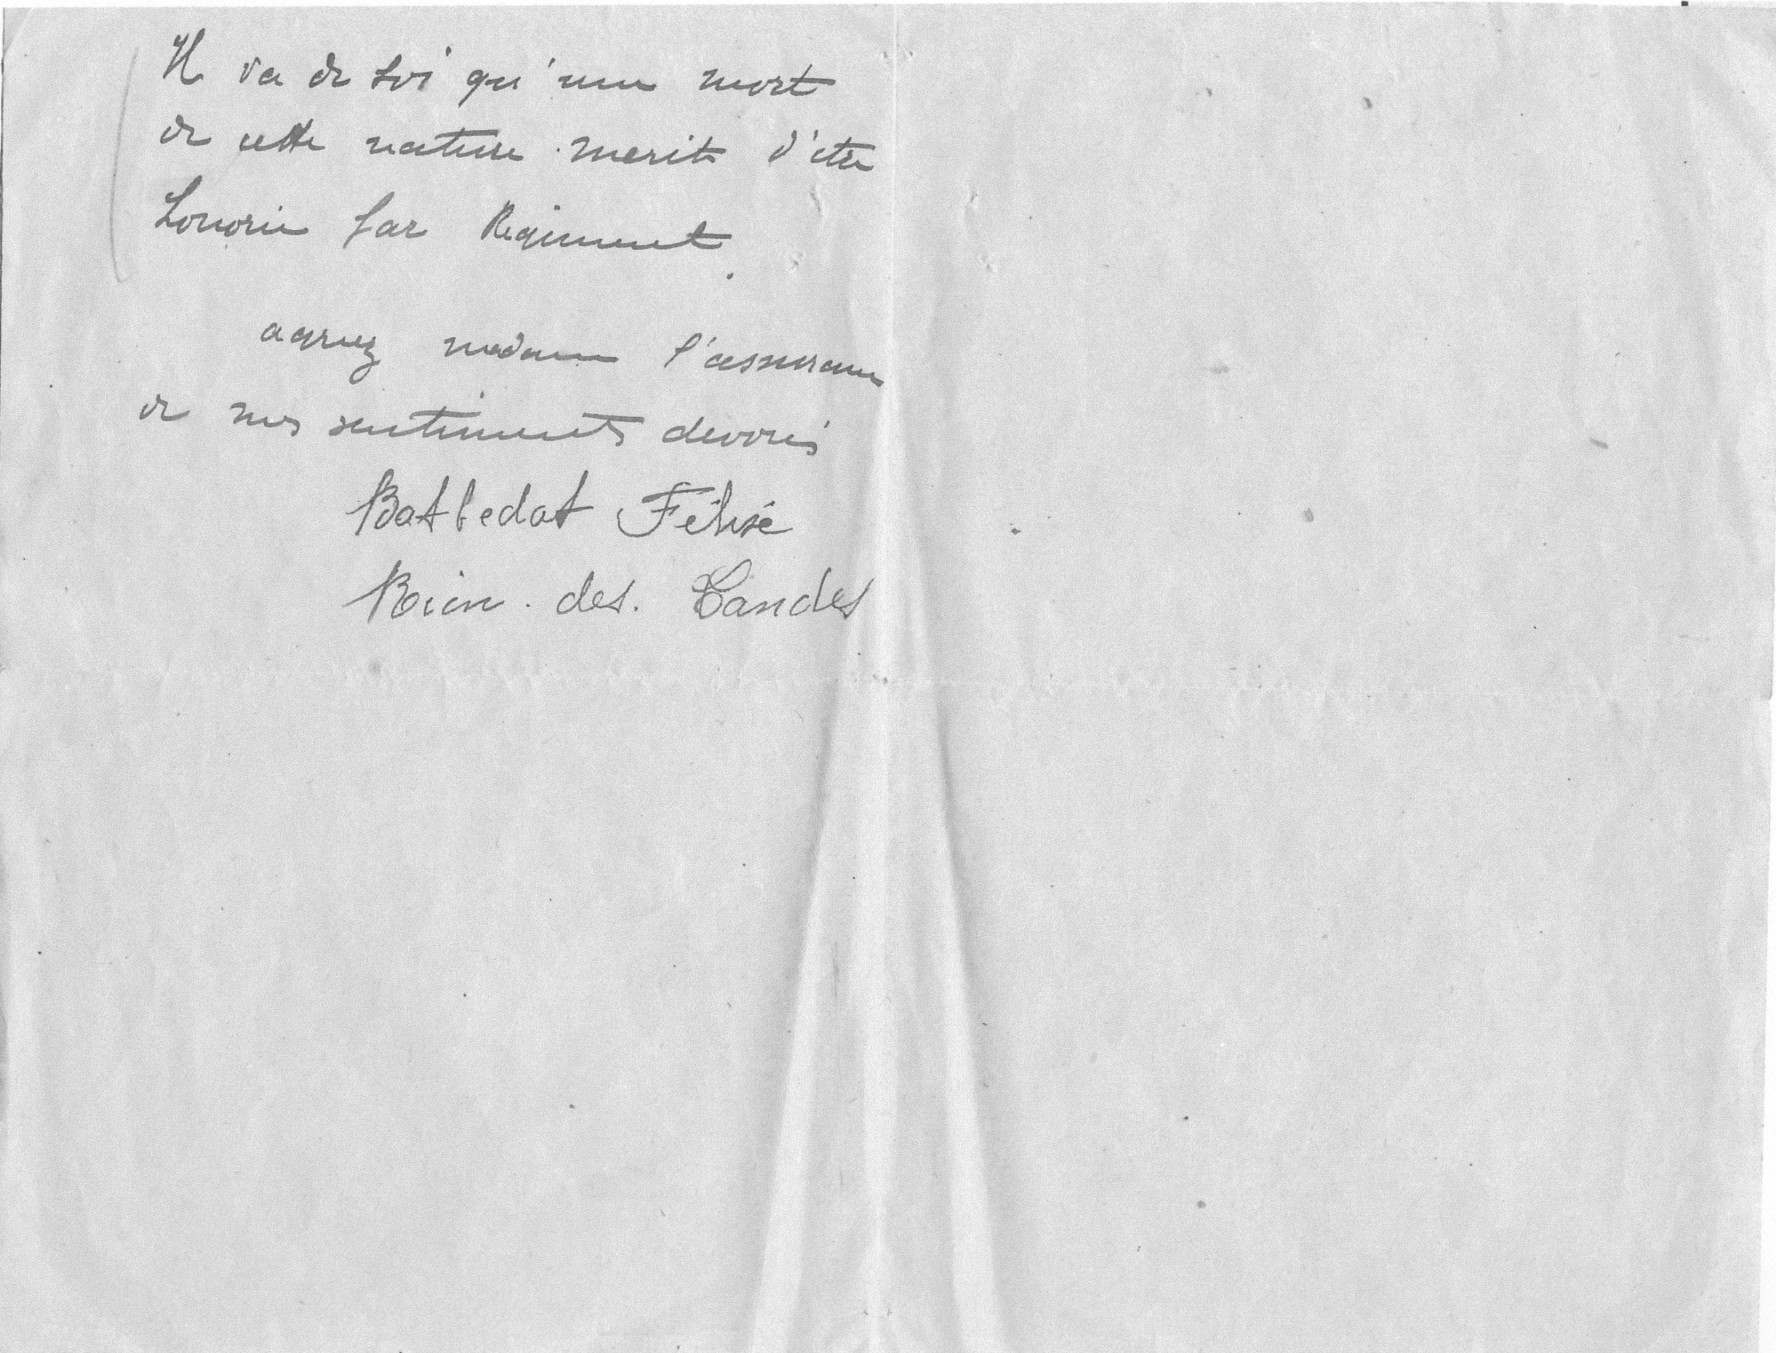 Il va de soi qu'une mort
de cette nature merite d'etre
honorée par Regiment.
agreez madame l'assurance
de mes sentiments devoués
Batbedat Félixé
Rion. des. Landes